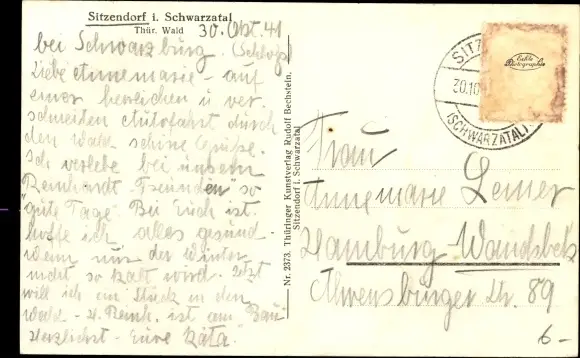 Sitzendorf i. Schwarzatal
Thür. Wald
30. Okt. 41
bei Schwarzburg. (Schloß)
Liebe Annemarie - auf
einer herrlichen u ver-
schneiten Autofahrt durch
den Wald schöne Grüße.
Ich verlebe bei unsern
Reinhardt Freunden so
"gute Tage". Bei Euch ist
hoffe ich alles gesund
wenn nur der Winter
nicht so kalt wird. Jetzt
will ich ein Stück in den
Wald - H. Reinh. ist am Bau
Herzlichst - Eure Käta.
Nr. 2373. Thüringer Kunstverlag Rudolf Bechstein.
Sitzendorf i. Schwarzatal
Echte
Photographie
SITZ
30.10
(SCHWARZATAL)
Frau
Annemarie
Hamburg-Wandsbek
Ahrensburger Str. 89
6-